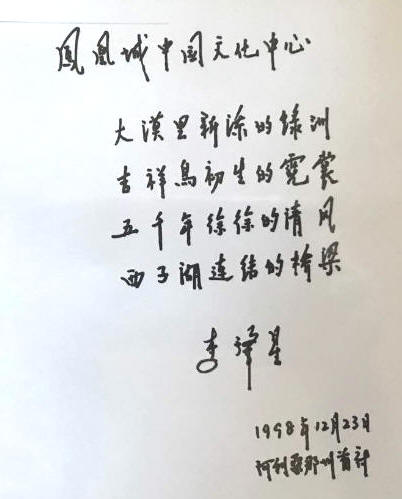 凤凰城中国文化中心
大漠里新添的绿洲
吉祥鸟初生的霓裳
五千年徐徐的清风
西子湖连结的桥梁
李肇星
1998年12月23日
阿利桑那州首府